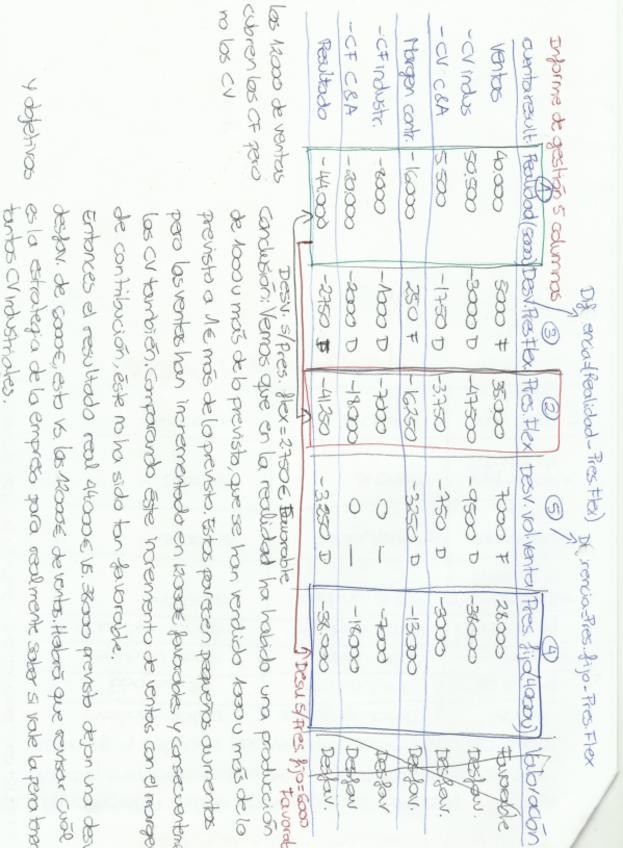 Diferencia=(Realidad-Pres.Flex) Diferencia=Pres.fijo-Pres.Flex
Informe de gestión 5 columnas ① ③ ② ⑤ ④
cuenta result. Realidad(5000) Desv.Pres.Flex Pres.Flex Desv.Vol.venta Pres.fijo(4000u) Valoración
Ventas 40.000 5000 F 35.000 7000 F 28.000 Favorable
-CV indus 50.500 -3000 D -47.500 -9500 D -38.000 Desfav.
-CV C&A 5.500 -1.750 D -3.750 -750 D -3000 Desfav.
Margen contr. -16000 250 F -16.250 -3250 D -13.000 Desfav.
-CF industr. -8000 -1000 D -7000 0 - -7.000 Desfav
-CF C&A -20.000 -2000 D -18.000 0 - -18.000 Desfav
Resultado -44.000 -2750 F -41.250 -3.250 D -38.000 Desfav.
Desv. s/Pres. fijo=6000 Favorab
Desv. s/Pres. flex=2750€ Favorable
los 12000 de ventas
cubren los CF pero
no los CV
Conclusión: Vemos que en la realidad ha habido una producción
de 1000u más de lo previsto, que se han vendido 1000u más de lo
previsto a 1€ más de lo previsto. Estos parecen pequeños aumentos
pero las ventas han incrementado en 12000€ favorables y consecuenteme
los CV también. Comparando éste incremento de ventas con el marge
de contribución, éste no ha sido tan favorable.
Entonces el resultado real 44.000€ vs. 38000 previsto dejan una des
desfav. de 6000€, esto vs. las 12000€ de ventas. Habrá que revisar cuál
es la estrategia de la empresa para realmente saber si vale la pena tener
tantos CV industriales.
y objetivos